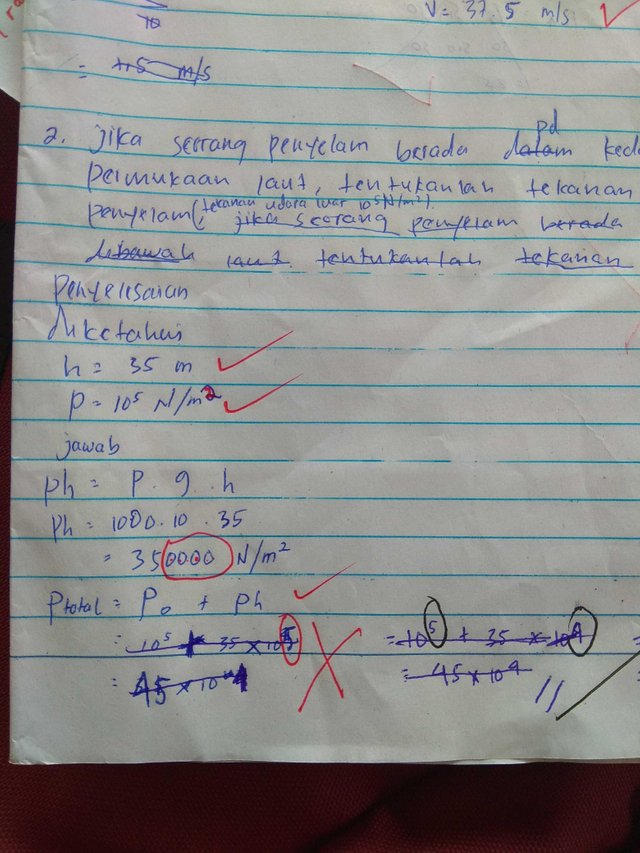 V = 37.5 m/s
10
= 115 m/s
2. jika seorang penyelam berada dalam pd keda
permukaan laut, tentukanlah tekanan
(tekanan udara luar 10⁵ N/m²).
penyelam, jika seorang penyelam berada
dibawah laut. tentukanlah tekanan
Penyelesaian
diketahui
h = 35 m
P = 10⁵ N/m²
jawab
Ph = P . g . h
Ph = 1000.10 . 35
= 350000 N/m²
Ptotal = P₀ + Ph
= 10⁵ + 35 x 10⁵ = 10⁵ + 35 x 10⁴
= 45 x 10⁴ = 45 x 10⁴